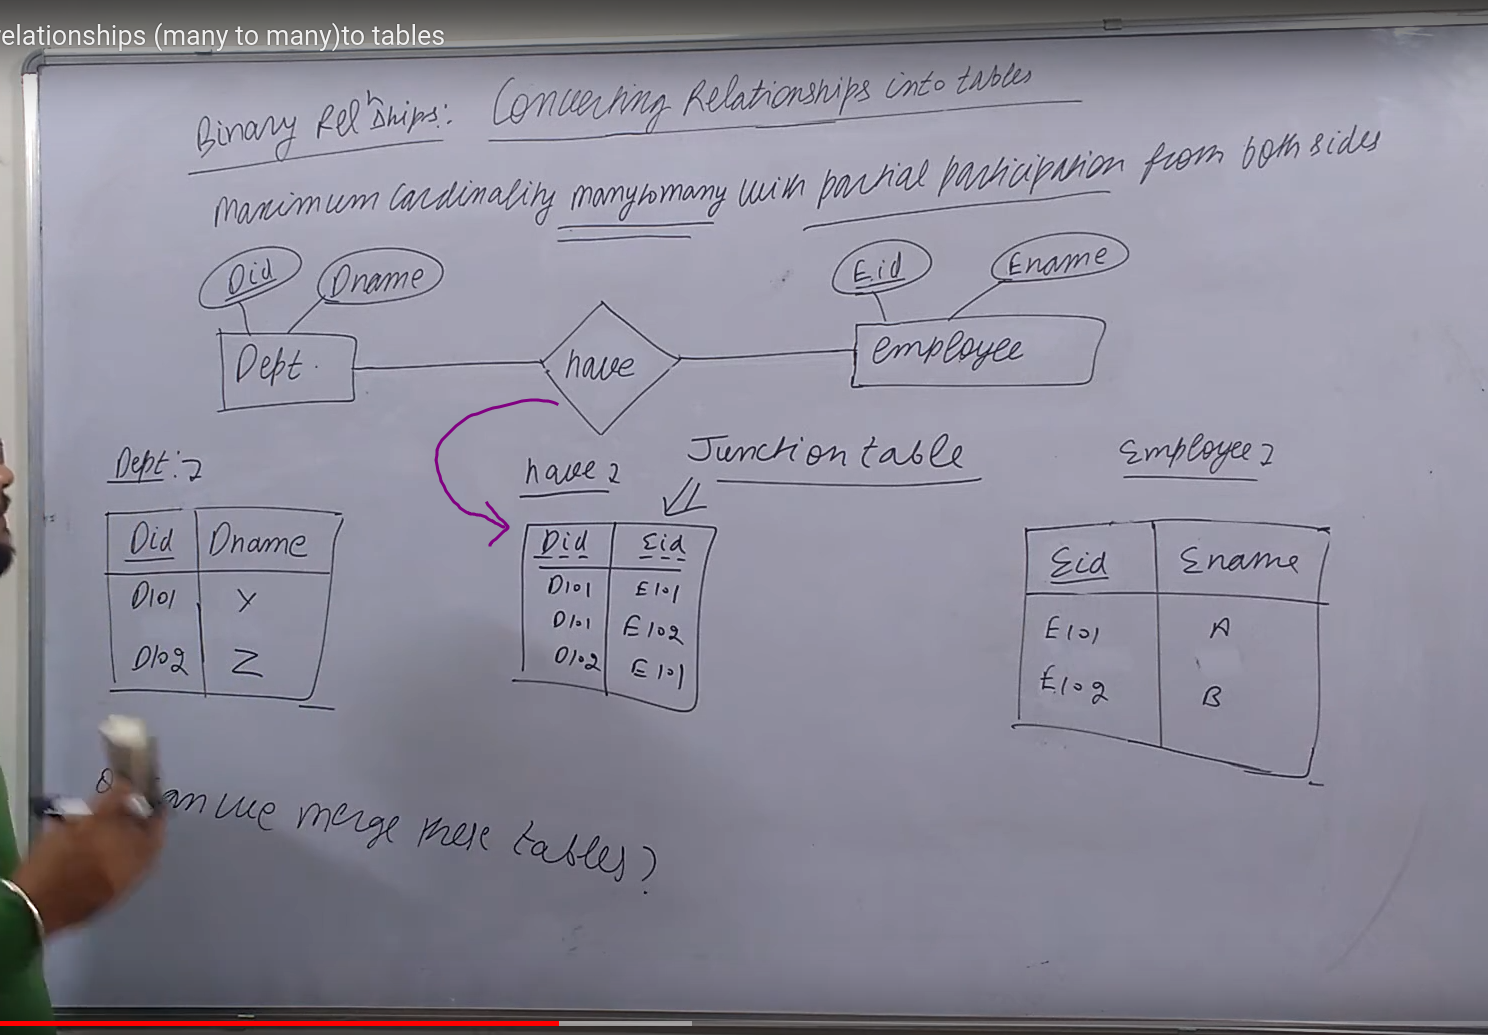 elationships (many to many)to tables
Binary Relnships: Converting Relationships into tables
Maximum Cardinality many to many with partial participation from both sides
Did Dname Eid Ename
Dept. have employee
Dept: have Junction table Employee
Did Dname
D101 Y
D102 Z
Did Eid
D101 E101
D101 E102
D102 E101
Eid Ename
E101 A
E102 B
an we merge these tables?